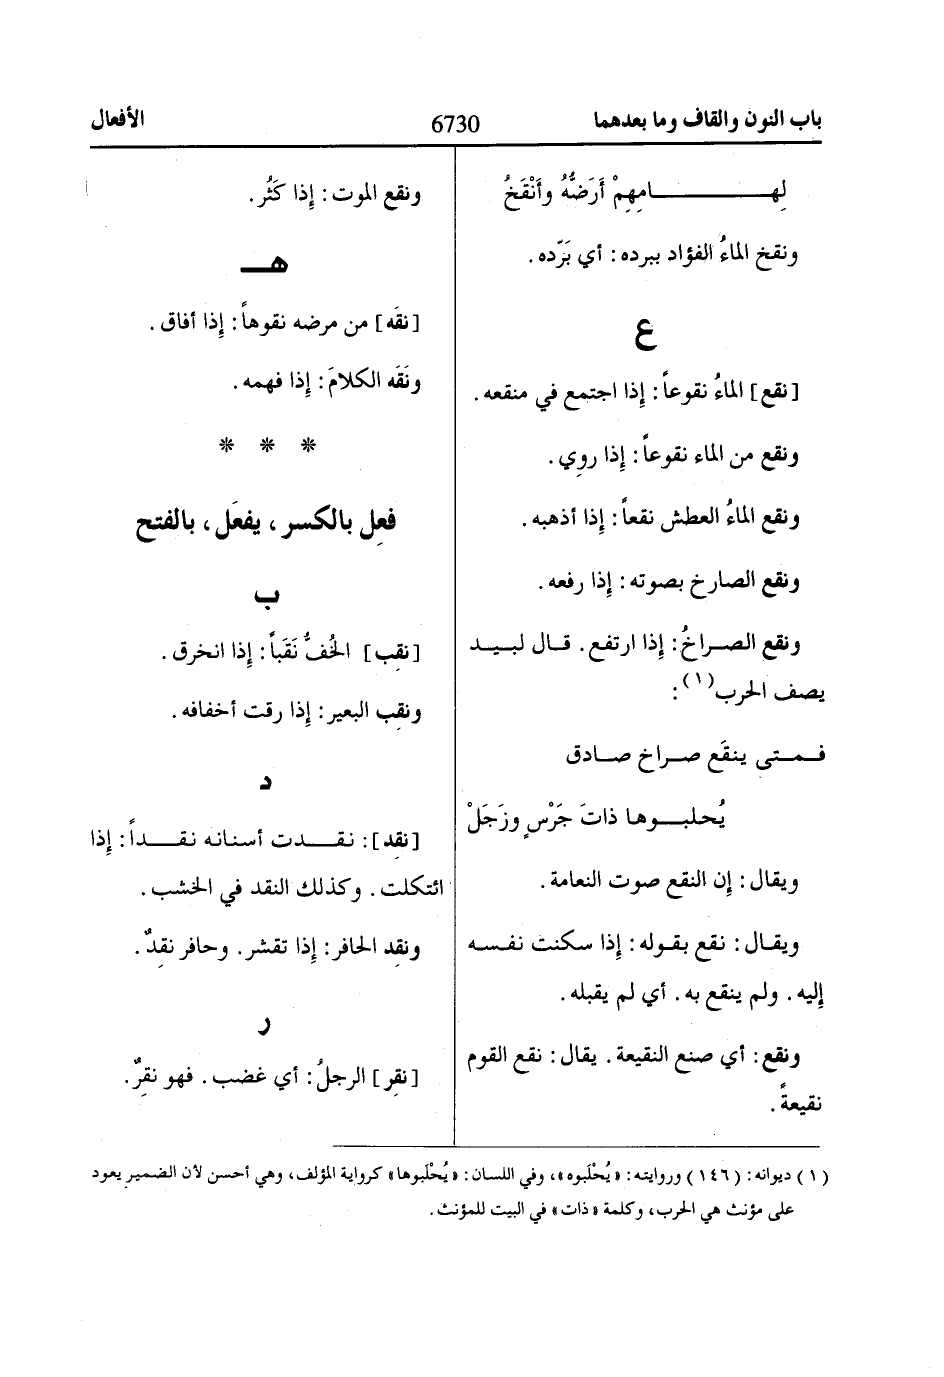 باب النون والقاف وما بعدهما 6730 الأفعال
لِهــامِهِمْ أَرَضُّهُ وأَنْقَخُ
ونقخ الماءُ الفؤاد ببرده: أي بَرّده.
ع
[نقع] الماءُ نقوعاً: إذا اجتمع في منقعه.
ونقع من الماء نقوعاً: إذا روِي.
ونقع الماءُ العطش نقعاً: إذا أذهبه.
ونقع الصارخ بصوته: إذا رفعه.
ونقع الصراخُ: إذا ارتفع. قال لبيد
يصف الحرب(١):
فمتى ينقَع صراخ صادق
يُحلبوها ذاتَ جَرْسٍ وزَجَلْ
ويقال: إن النقع صوت النعامة.
ويقال: نقع بقوله: إذا سكنت نفسه
إليه. ولم ينقع به. أي لم يقبله.
ونقع: أي صنع النقيعة. يقال: نقع القوم
نقيعةً.
ونقع الموت: إذا كَثُر.
هـ
[نقَه] من مرضه نقوهاً: إذا أفاق.
ونَقَه الكلامَ: إذا فهمه.
* * *
فعِل بالكسر، يفعَل، بالفتح
ب
[نقِب] الخُفُّ نَقَباً: إذا انخرق.
ونقِب البعير: إذا رقت أخفافه.
د
[نقِد]: نقدت أسنانه نقداً: إذا
ائتكلت. وكذلك النقد في الخشب.
ونقِد الحافر: إذا تقشر. وحافر نقِدٌ.
ر
[نقِر] الرجلُ: أي غضب. فهو نقِرٌ.
(١) ديوانه: (١٤٦) وروايته: «يُحْلَبوه»، وفي اللسان: «يُحْلَبوها» كرواية المؤلف، وهي أحسن لأن الضمير يعود
على مؤنث هي الحرب، وكلمة «ذات» في البيت للمؤنث.